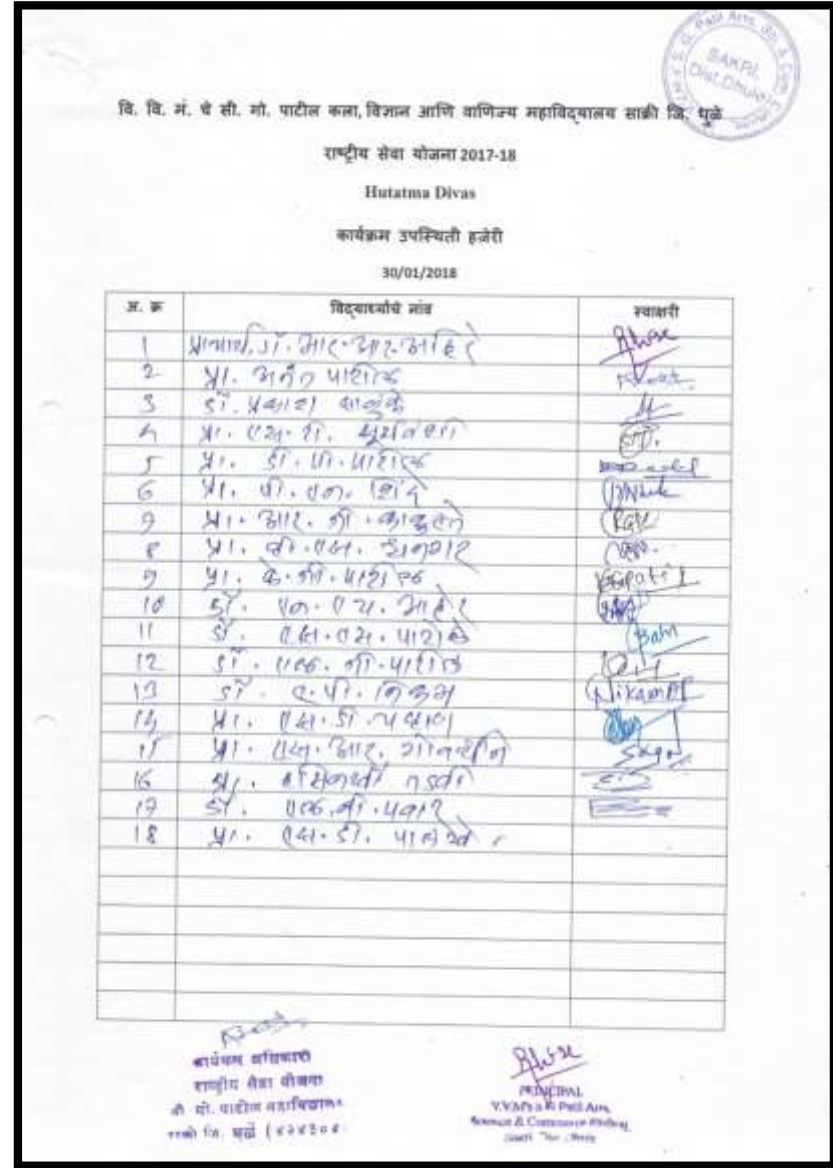 वि. वि. मं. चे सी. गो. पाटील कला, विज्ञान आणि वाणिज्य महाविद्यालय साक्री जि. धुळे
राष्ट्रीय सेवा योजना 2017-18
Hutatma Divas
कार्यक्रम उपस्थिती हजेरी
30/01/2018
अ. क्र विद्यार्थ्याचे नांव स्वाक्षरी
1 प्राचार्य. डॉ. आर. आर. अहिरे
2 प्रा. अनंत पाटील
3 डॉ. प्रकाश साळुंके
4 प्रा. एस. टी. सूर्यवंशी
5 प्रा. डी. पी. पाटील
6 प्रा. पी. एन. शिंदे
7 प्रा. आर. जी. काकुस्ते
8 प्रा. बी. एस. धनगर
9 प्रा. के. जी. पाटील KGPatil
10 डॉ. एन. एच. अहेर
11 डॉ. एस. एम. पाटोळे
12 डॉ. एल. जी. पाटील
13 डॉ. ए. पी. निकम
14 प्रा. एस. डी. चव्हाण
15 प्रा. एस. आर.
16 प्रा. तडवी
17 डॉ. एल. बी. पवार
18 प्रा. एस. डी. पालखे
कार्यक्रम अधिकारी
राष्ट्रीय सेवा योजना
सी. गो. पाटील महाविद्यालय
साक्री जि. धुळे (424304
PRINCIPAL
Science & Commerce College